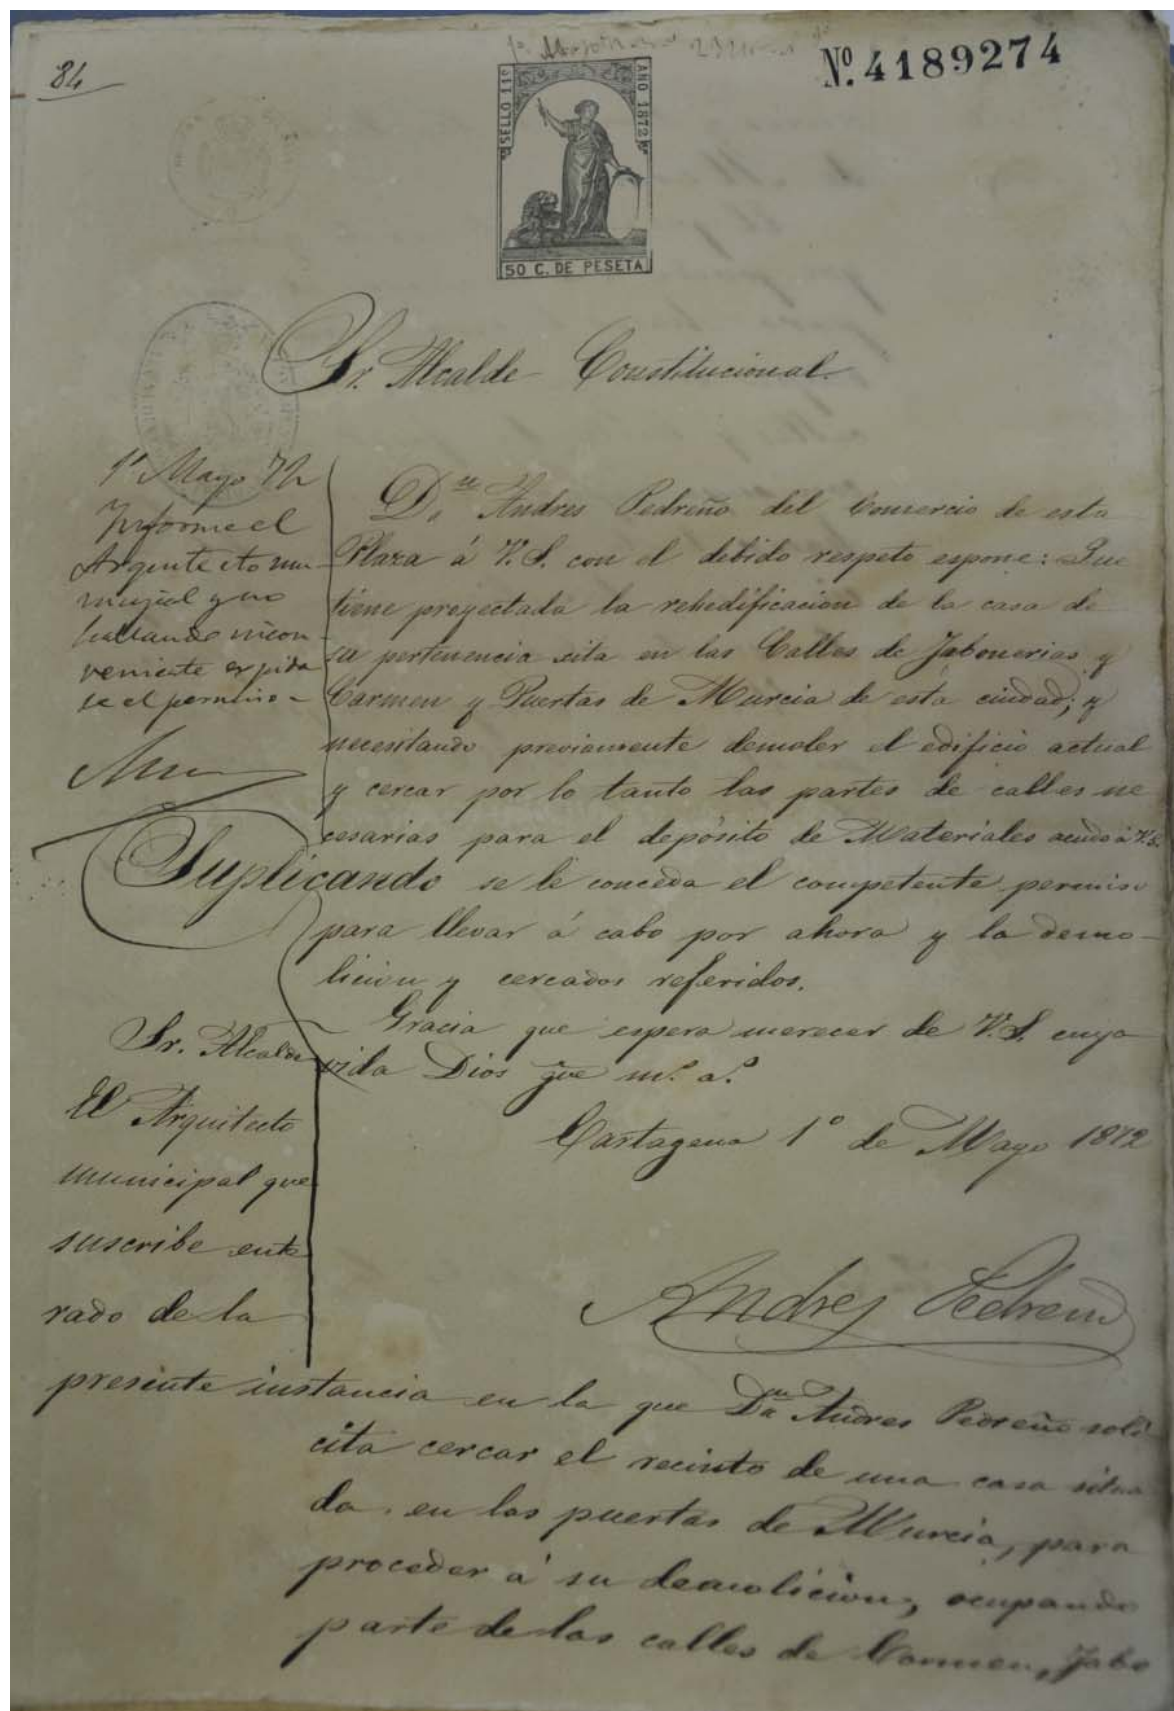 84
Nº. 4189274
SELLO 11º
AÑO 1872
50 C. DE PESETA
Sr. Alcalde Constitucional.
1º Mayo 72
Informe el
Arquitecto mu-
nicipal y no
hallando incon-
veniente expida
se el permiso-
Dn. Andres Pedreño del Comercio de esta
Plaza á V.S. con el debido respeto espone: Que
tiene proyectada la rehedificacion de la casa de
su pertenencia sita en las Calles de Jabonerias y
Carmen y Puertas de Murcia de esta ciudad; y
necesitando previamente demoler el edificio actual
y cercar por lo tanto las partes de calles ne
cesarias para el depósito de Materiales acude á V.S.
Suplicando se le conceda el competente permiso
para llevar á cabo por ahora y la demo-
licion y cercados referidos.
Gracia que espera merecer de V.S. cuya
vida Dios gue m.s a.s
Cartagena 1º de Mayo 1872
Andres Pedreño
Sr. Alcalde
El Arquitecto
municipal que
suscribe ente
rado de la
presente instancia en la que Dn. Andres Pedreño soli
cita cercar el recinto de una casa situa
da en las puertas de Murcia, para
proceder á su demolicion, ocupando
parte de las calles de Carmen, Jabo